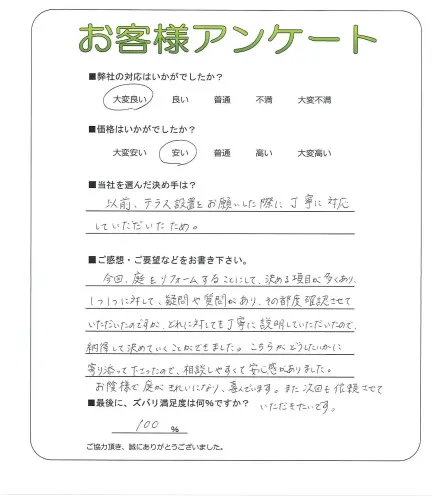 お客様アンケート
■弊社の対応はいかがでしたか？
大変良い 良い 普通 不満 大変不満
■価格はいかがでしたか？
大変安い 安い 普通 高い 大変高い
■当社を選んだ決め手は？
以前、テラス設置をお願いした際に丁寧に対応
していただいたため。
■ご感想・ご要望などをお書き下さい。
今回、庭をリフォームすることにして、決める項目が多くあり、
1つ1つに対して、疑問や質問があり、その都度確認させて
いただいたのですが、どれに対しても丁寧に説明していただいたので、
納得して決めていくことができました。こちらがどうしたいかに
寄り添って下さったので、相談しやすくて安心感がありました。
お陰様で庭がきれいになり、喜んでいます。また次回も依頼させて
いただきたいです。
■最後に、ズバリ満足度は何%ですか？
100 %
ご協力頂き、誠にありがとうございました。